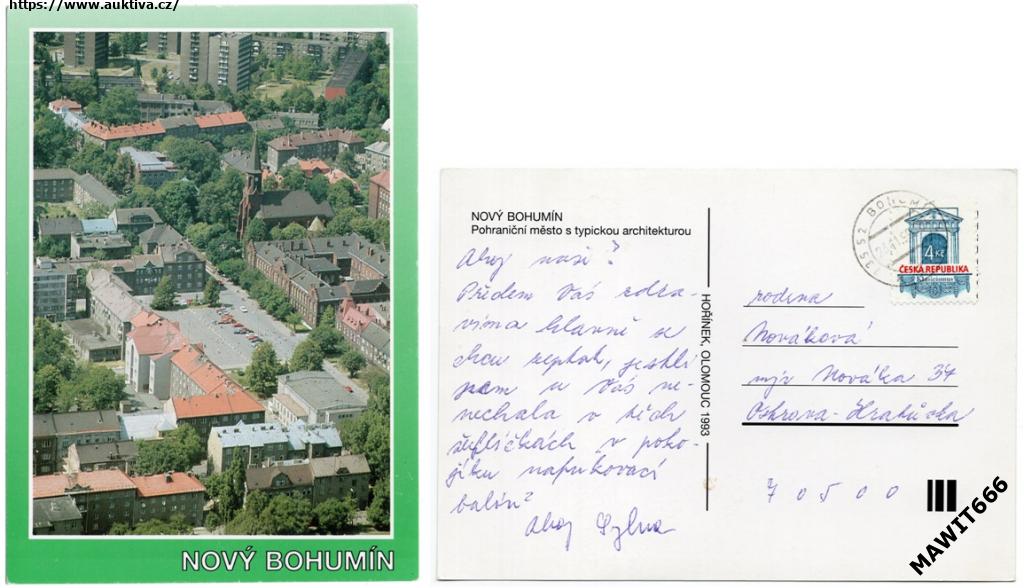 https://www.auktiva.cz/
NOVÝ BOHUMÍN
NOVÝ BOHUMÍN
Pohraniční město s typickou architekturou
Ahoj naši!
Předem Vás zdra-
víme hlavně se
chci zeptat, jestli
jsem u Vás ne-
nechala v těch
šuflíčkách v poko-
jíku nafukovací
balón?
Ahoj Sylva
HOŘÍNEK, OLOMOUC 1993
735 52 BOHUMÍN
4 Kč
ČESKÁ REPUBLIKA
rodina
Nováková
mjr Nováka 34
Ostrava-Hrabůvka
70500
MAWIT666